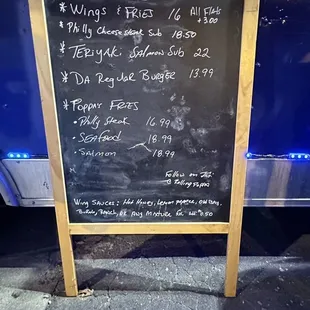 * Wings & Fries 16 All Flats +3.00
* Philly Cheese steak Sub 18.50
* Teriyaki Salmon Sub 22
* Da Regular Burger 13.99
* Poppas Fries
• Philly Steak 16.99
• Seafood 18.99
• Salmon 18.99
Follow on
@
Wing Sauces: Hot Honey, Lemon Pepper, Old Bay,
Buffalo, Ranch, OR Any Mixture For 0.50